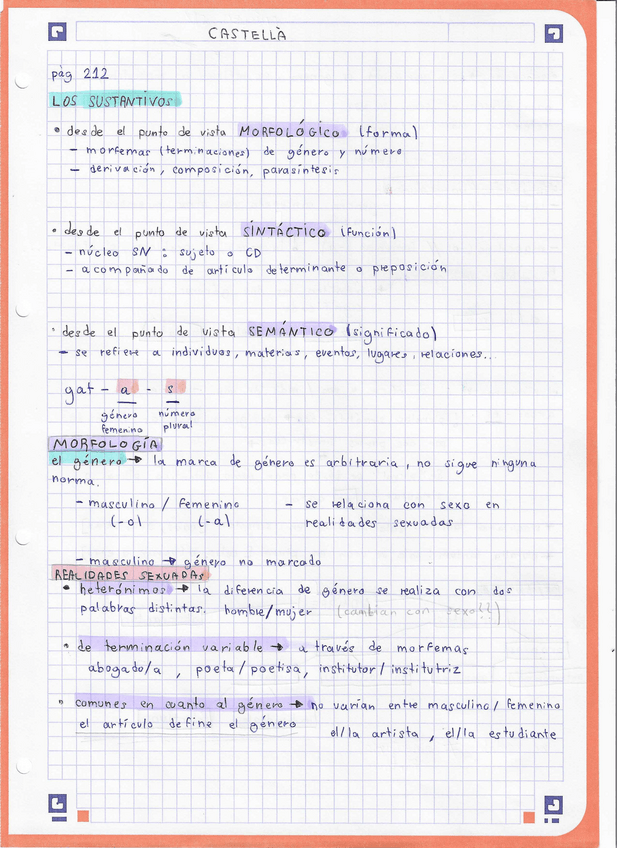 CASTELLÀ
pàg 212
LOS SUSTANTIVOS
• desde el punto de vista MORFOLÓGICO (forma)
- morfemas (terminaciones) de género y número
- derivación, composición, parasíntesis
• desde el punto de vista SINTÁCTICO (función)
- núcleo SN : sujeto o CD
- acompañado de artículo determinante o preposición
• desde el punto de vista SEMÁNTICO (significado)
- se refiere a individuos, materias, eventos, lugares, relaciones...
gat - a - s
género número
femenino plural
MORFOLOGÍA
el género → la marca de género es arbitraria, no sigue ninguna
norma.
- masculino / femenino - se relaciona con sexo en
(-o) (-a) realidades sexuadas
- masculino → género no marcado
REALIDADES SEXUADAS
• heterónimos → la diferencia de género se realiza con dos
palabras distintas. hombre/mujer (cambian con sexo!!)
• de terminación variable → a través de morfemas
abogado/a, poeta/poetisa, institutor/institutriz
• comunes en cuanto al género → no varían entre masculino/femenino
el artículo define el género el/la artista, el/la estudiante